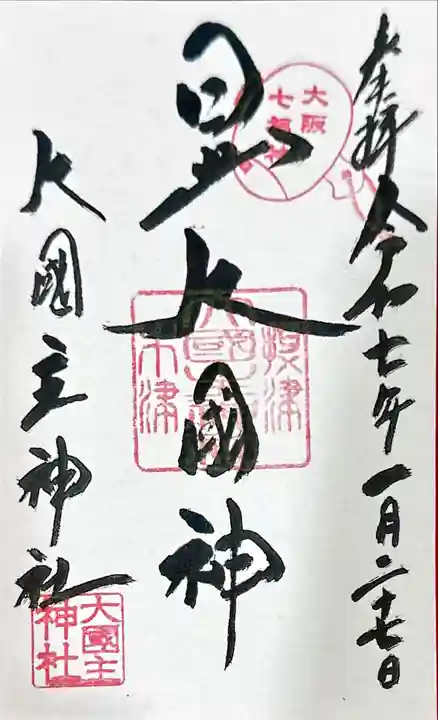 奉拝 令和七年一月二十七日
大阪
七福神
大國神
摂津
木津
大國主神社
大國主
神社